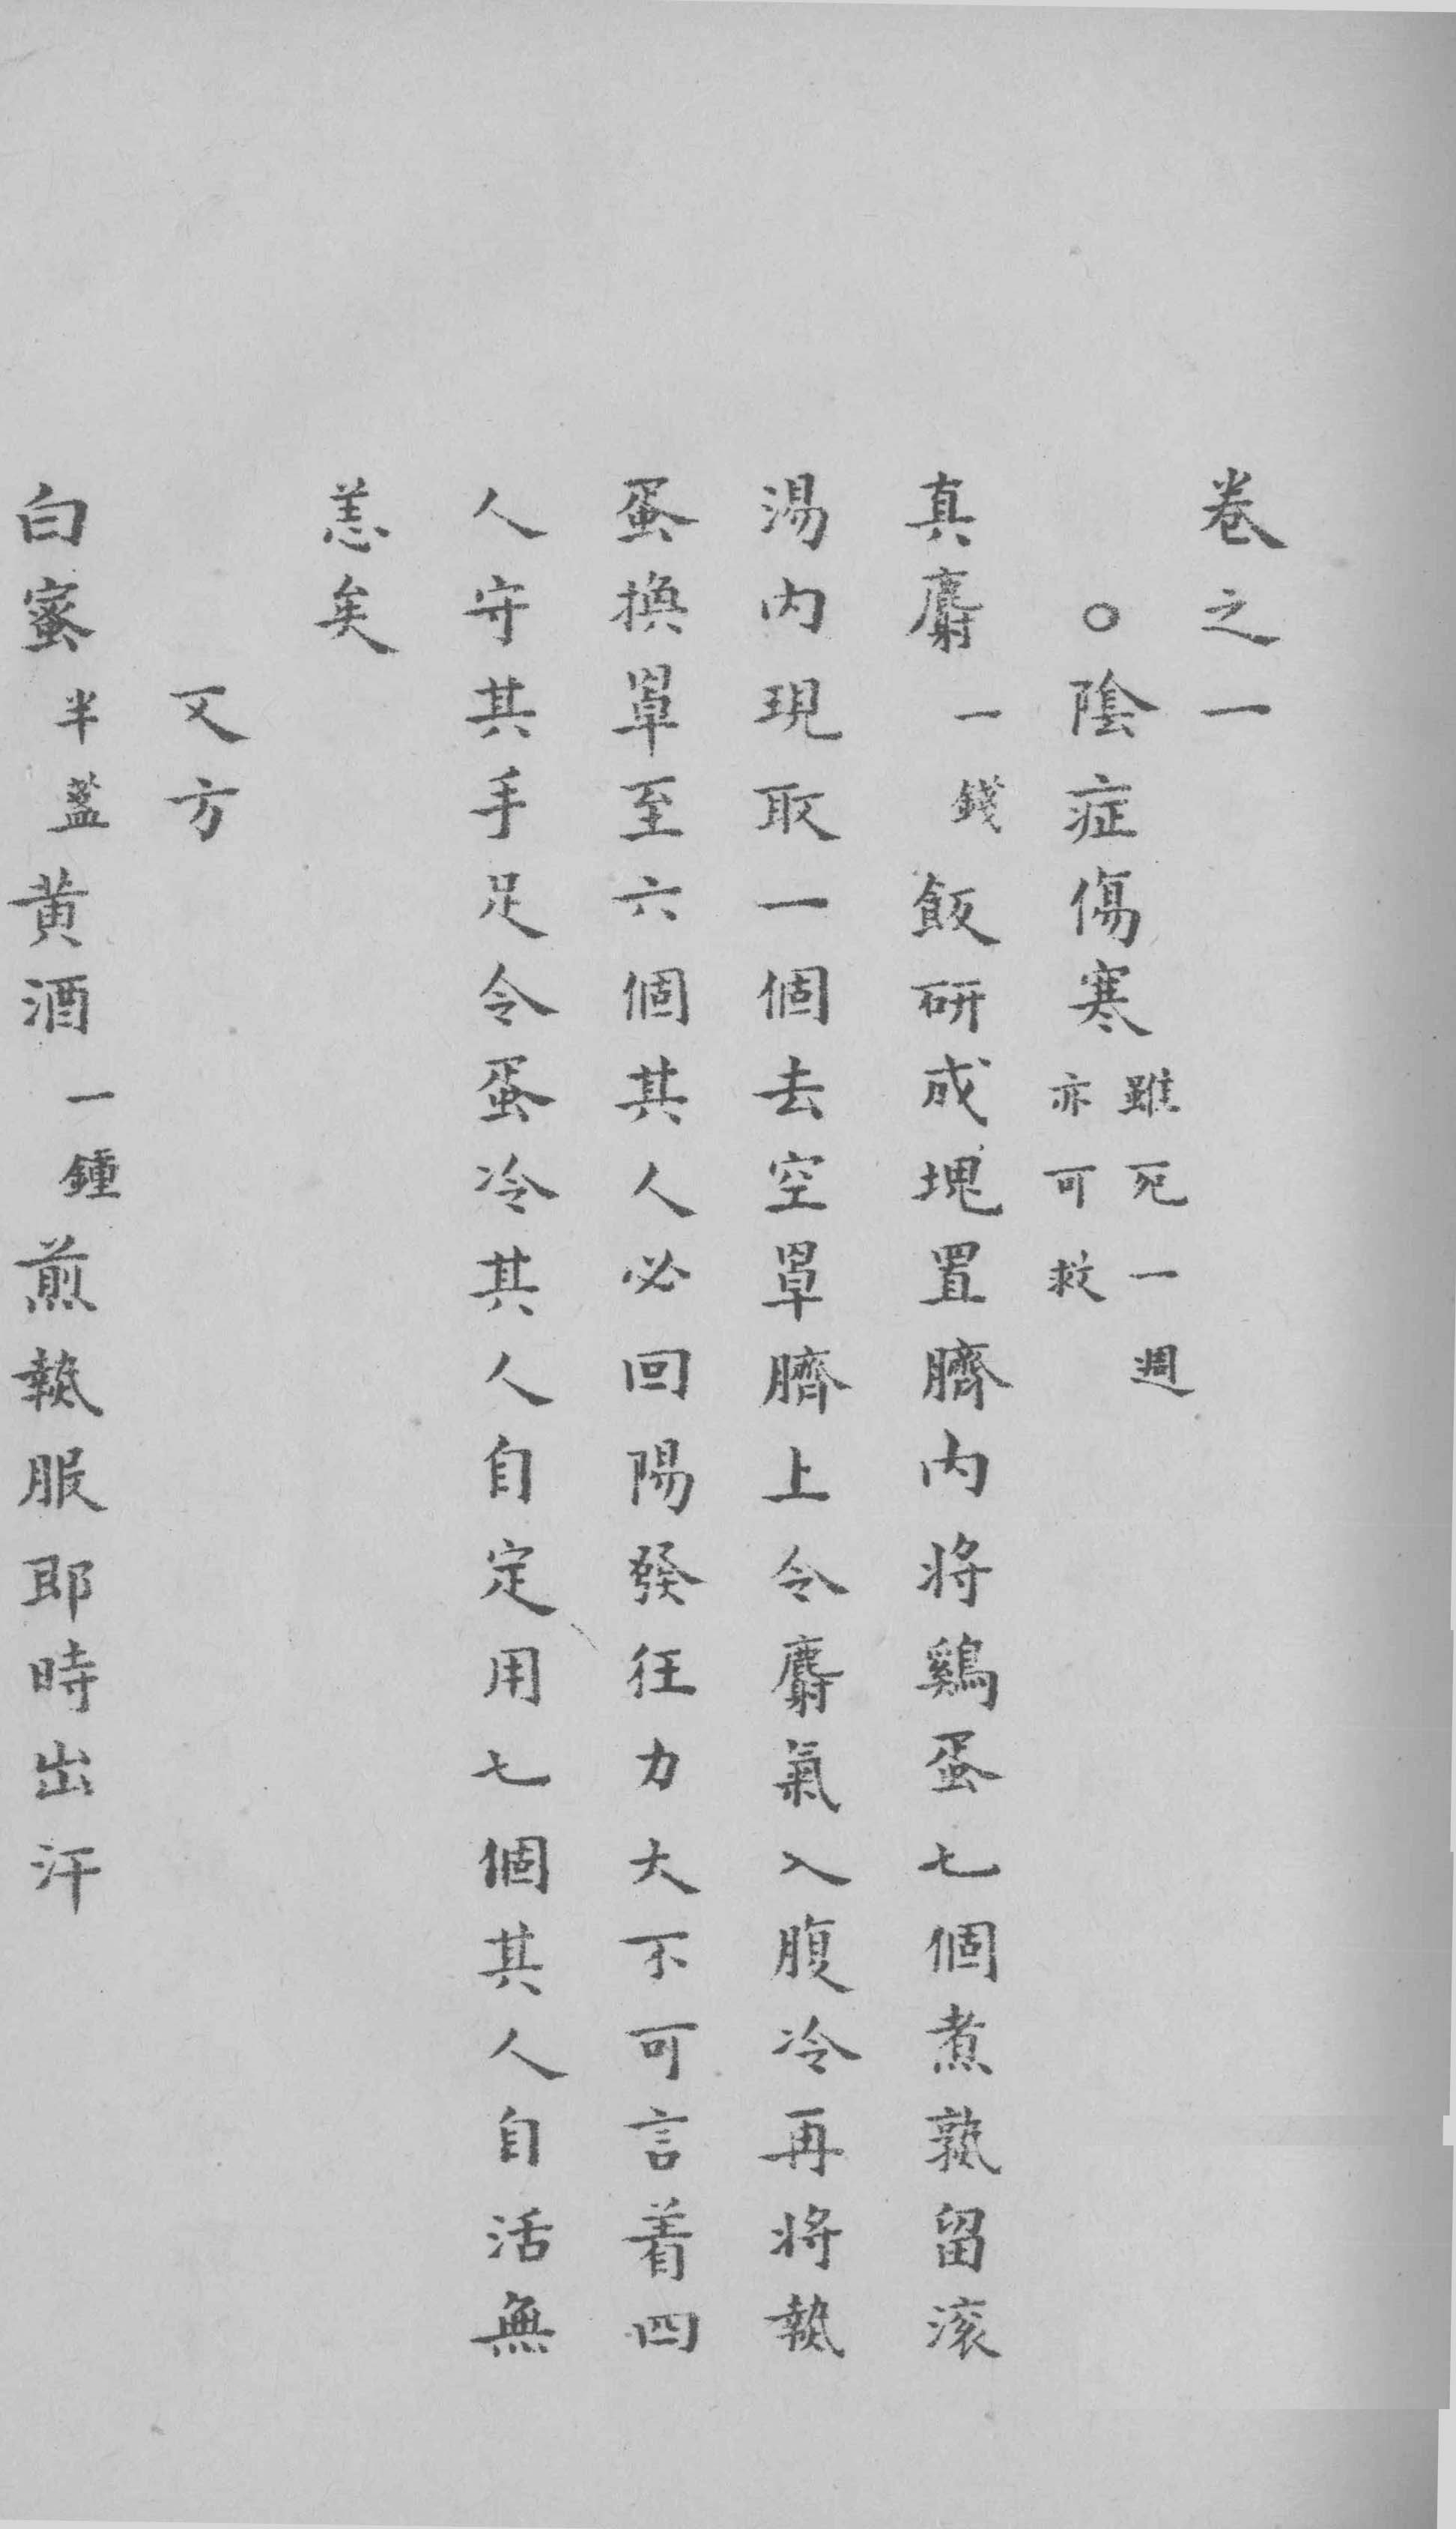 卷之一
○陰症傷寒雖死一週亦可救
真麝一錢飯研成塊置臍內將鷄蛋七個煮熟留滚
湯內現取一個去空罩臍上令麝氣入腹冷再將𤍠
蛋換罩至六個其人必回陽發狂力大不可言着四
人守其手足令蛋冷其人自定用七個其人自活無
恙矣
又方
白蜜半盏黄酒一鍾煎𤍠服即時出汗